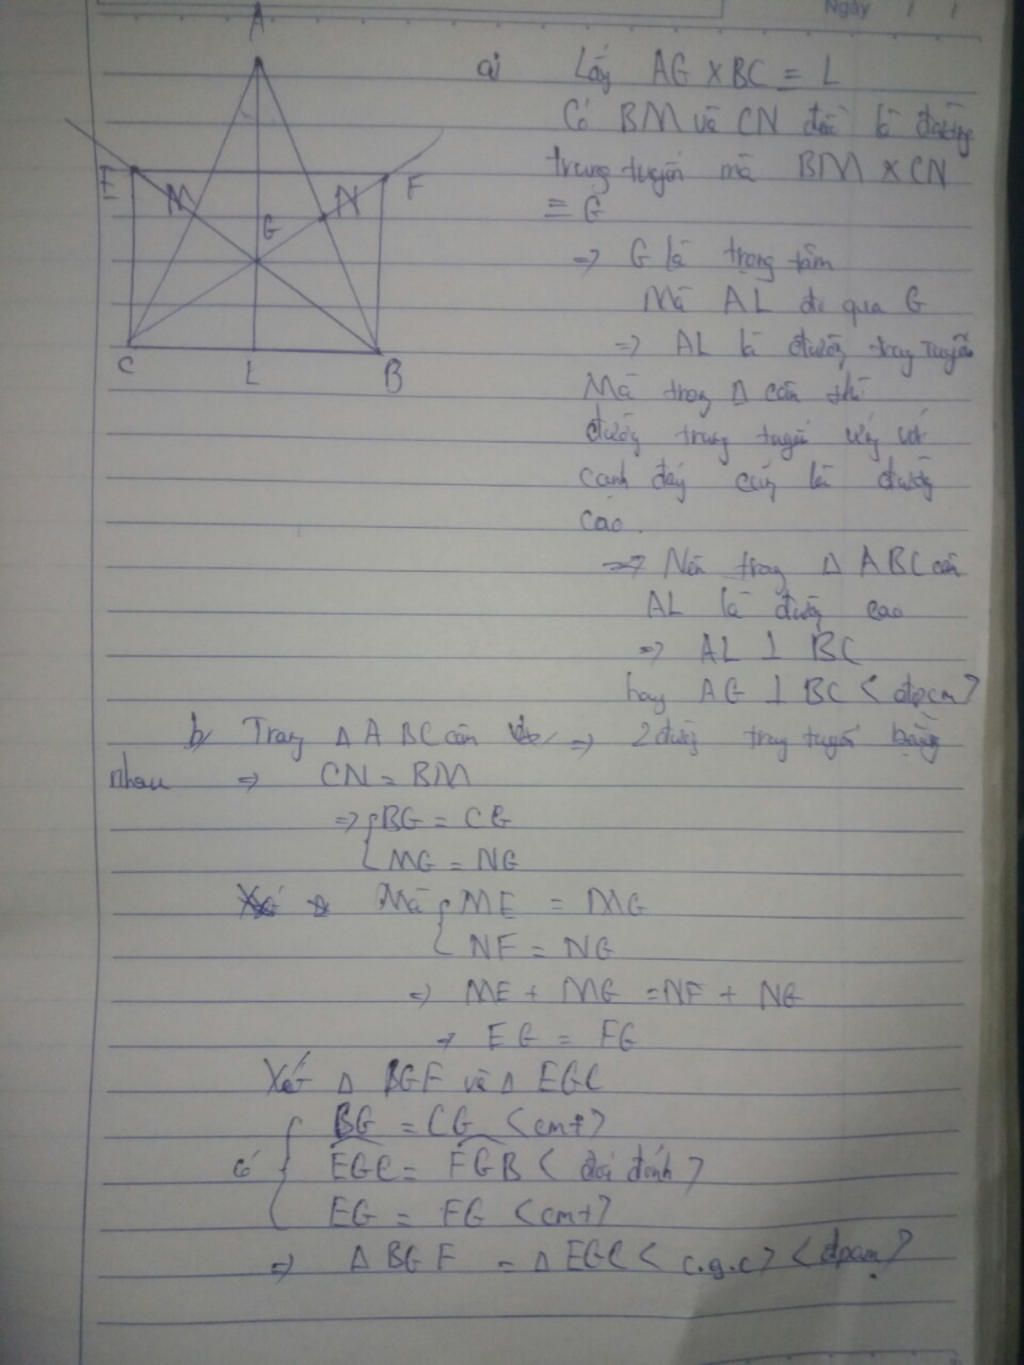 Ngày / /
A
E
M
N
F
G
C
L
B
a) Lấy AG x BC = L
Có BM và CN đều là đường
trung tuyến mà BM x CN
≡ G
=> G là trọng tâm
Mà AL đi qua G
=> AL là đường trung tuyến
Mà trong Δ cân thì
đường trung tuyến ứng với
cạnh đáy cũng là đường
cao.
=> Nên trong Δ ABC cân
AL là đường cao
=> AL ⊥ BC
hay AG ⊥ BC <đpcm>
b/ Trong Δ ABC cân => 2 đường trung tuyến bằng
nhau => CN = BM
=> { BG = CG
{ MG = NG
Mà { ME = MG
{ NF = NG
=> ME + MG = NF + NG
=> EG = FG
Xét Δ BGF và Δ EGC
{ BG = CG <cmt>
có { EGC = FGB < đối đỉnh >
{ EG = FG <cmt>
=> Δ BGF = Δ EGC < c.g.c > < đpcm >